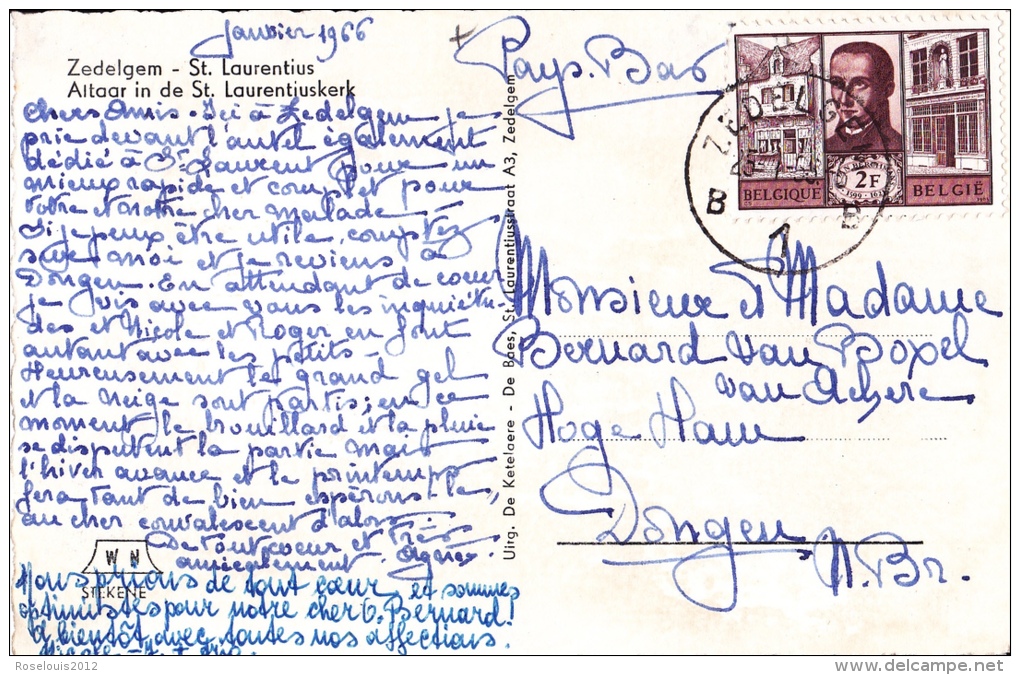 Janvier 1966
Zedelgem - St. Laurentius
Altaar in de St. Laurentiuskerk
Chers Amis. Ici à Zedelgem je
prie devant l'autel également
dédié à St Laurent pour un
mieux rapide et complet pour
votre et notre cher malade
Si je peux être utile, comptez
sur moi et je reviens à
Dongen. En attendant de cœur
je suis avec vous les inquiétu-
des et Nicole et Roger en font
autant avec les petits -
Heureusement le grand gel
et la neige sont partis; en ce
moment le brouillard et la pluie
se disputent la partie mais
l'hiver avance et le printemps
fera tant de bien espérons-le,
au cher convalescent d'alors.
De tout coeur et très
amicalement. Agnès.
W N
STEKENE
Nous prions de tout cœur et sommes
optimistes pour notre cher Bernard!
A bientôt avec toutes nos affections.
Uitg. De Ketelaere - De Baes, St. Laurentiusstraat A3, Zedelgem
Pays-Bas
ZEDELGEM
B B
1
BELGIQUE 2F BELGIË
Monsieur et Madame
Bernard van Boxel
van
Hoge Ham
Dongen
N. Br.
Roselouis2012
delcampe.net